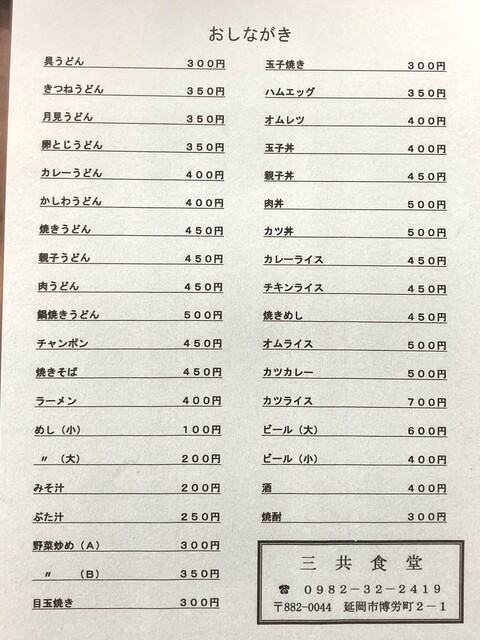 おしながき
具うどん 300円
きつねうどん 350円
月見うどん 350円
卵とじうどん 350円
カレーうどん 400円
かしわうどん 400円
焼きうどん 450円
親子うどん 450円
肉うどん 450円
鍋焼きうどん 500円
チャンポン 450円
焼きそば 450円
ラーメン 400円
めし（小） 100円
〃（大） 200円
みそ汁 200円
ぶた汁 250円
野菜炒め（A） 300円
〃（B） 350円
目玉焼き 300円
玉子焼き 300円
ハムエッグ 350円
オムレツ 400円
玉子丼 400円
親子丼 450円
肉丼 500円
カツ丼 500円
カレーライス 450円
チキンライス 450円
焼きめし 450円
オムライス 500円
カツカレー 500円
カツライス 700円
ビール（大） 600円
ビール（小） 400円
酒 400円
焼酎 300円
三共食堂
☎ 0982-32-2419
〒882-0044 延岡市博労町2-1